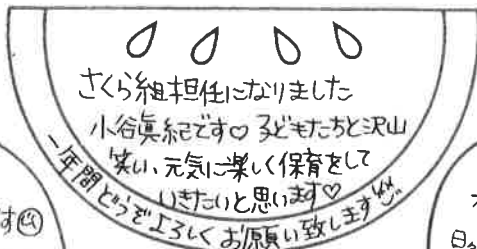 さくら組担任になりました
小谷眞紀です♡ 子どもたちと沢山
笑い、元気に楽しく保育をして
いきたいと思います♡
一年間どうぞよろしくお願い致します
す